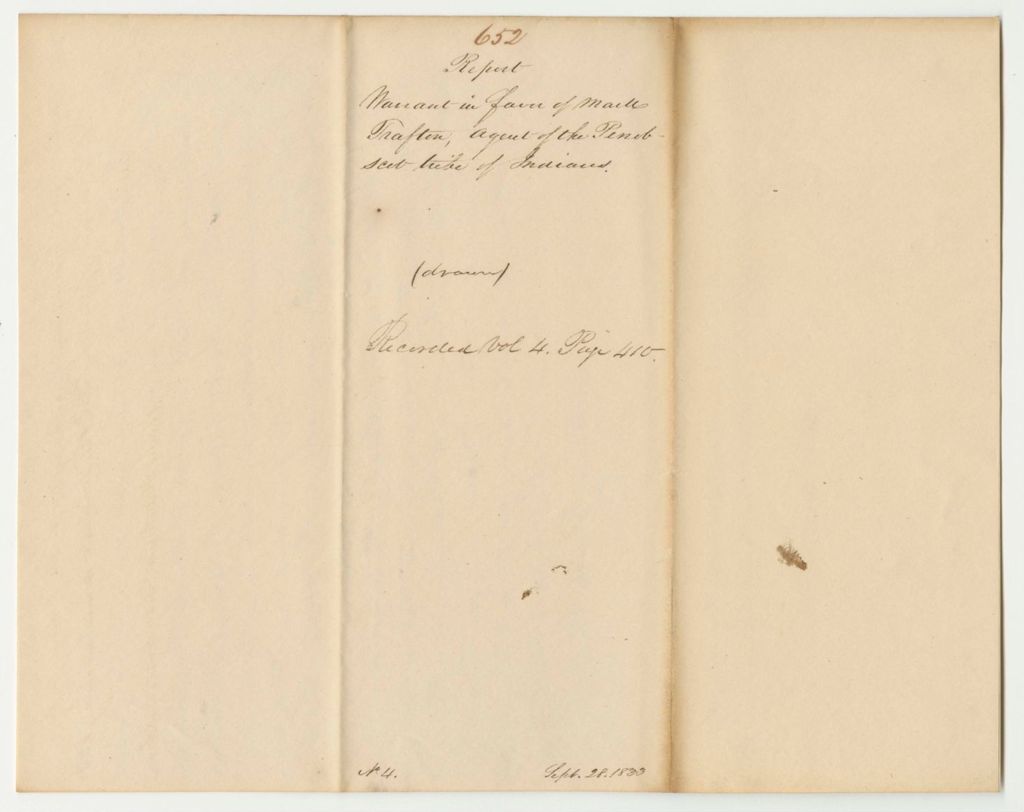 652
Report
Warrant in favor of Mark
Trafton, Agent of the Penob-
scot tribe of Indians.
(drawn)
Recorded Vol 4. Page 410.
No 4.
Sept. 28. 1833